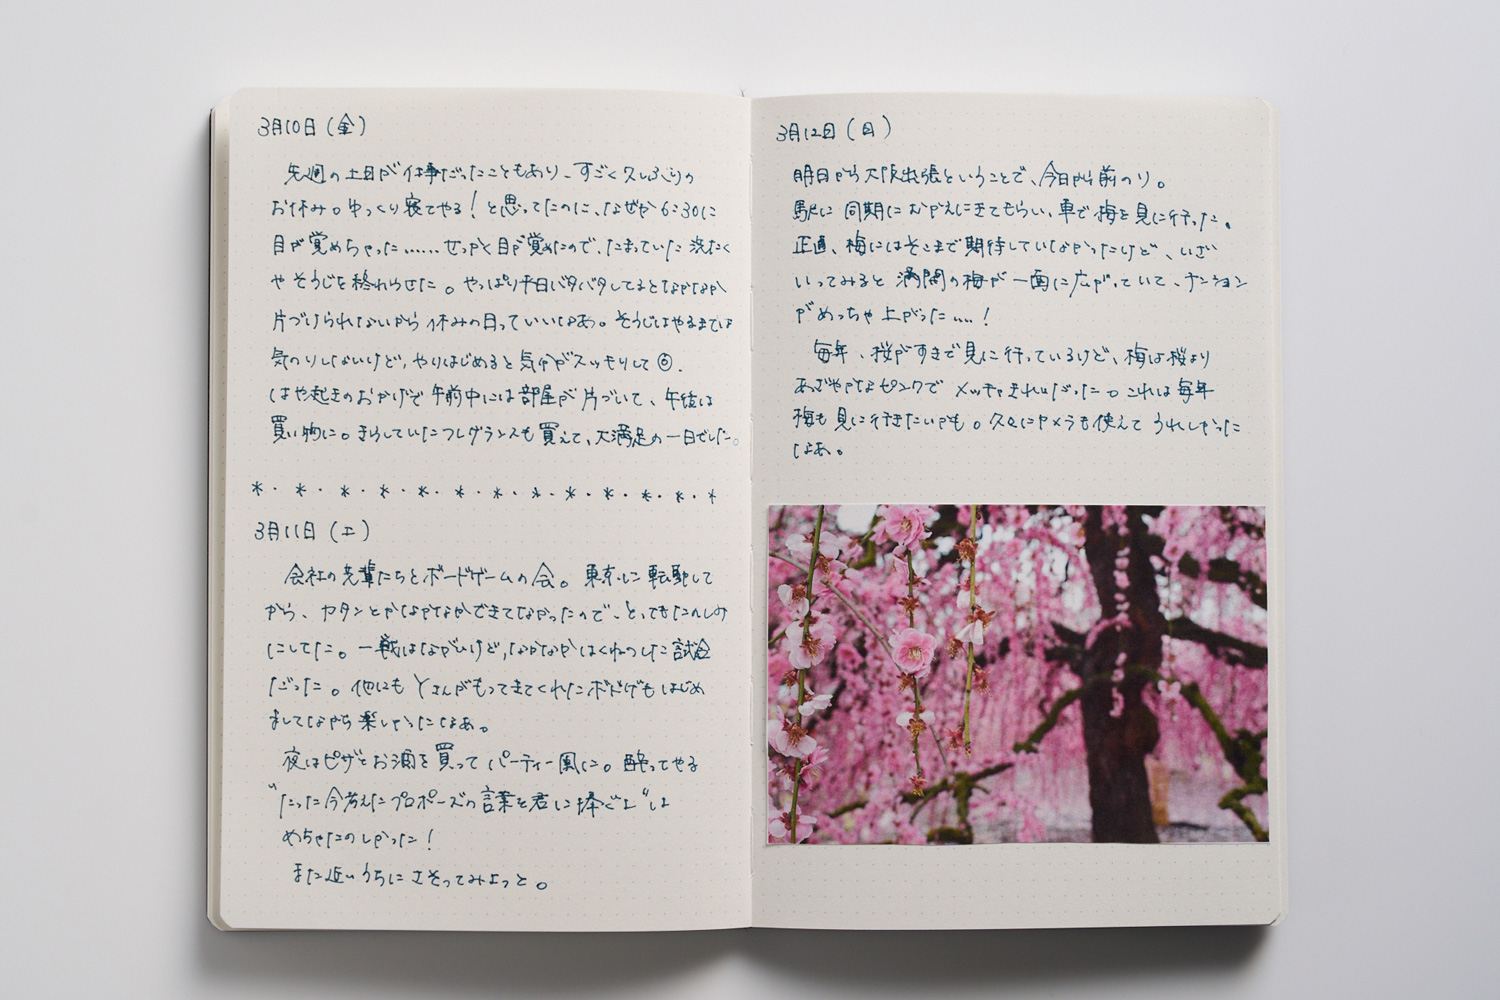 3月10日（金）
先週の土日が仕事だったこともあり、すごく久しぶりの
お休み。ゆっくり寝てやる！と思ってたのに、なぜか6:30に
目が覚めちゃった……せっかく目が覚めたので、たまっていた洗たく
やそうじを終わらせた。やっぱり平日バタバタしてるとなかなか
片づけられないから休みの日っていいなあ。そうじはやるまでは
気のりしないけど、やりはじめると気分がスッキリして◎.
はや起きのおかげで午前中には部屋が片づいて、午後は
買い物に。きらしていたフレグランスも買えて、大満足の一日でした。
*・*・*・*・*・*・*・*・*・*・*・*・*
3月11日（土）
会社の先輩たちとボードゲームの会。東京に転勤して
から、カタンとかなかなかできてなかったので、とってもたのしみ
にしてた。一戦はながいけど、なかなかはくねつした試合
だった。他にもYさんがもってきてくれたボドゲもはじめ
ましてながら楽しかったなあ。
夜はピザとお酒を買ってパーティー風に。酔ってやる
"たった今考えたプロポーズの言葉を君に捧ぐよ"は
めちゃたのしかった！
また近いうちにさそってみよっと。
3月12日（日）
明日から大阪出張ということで、今日から前のり。
駅に同期にむかえにきてもらい、車で梅を見に行った。
正直、梅にはそこまで期待していなかったけど、いざ
いってみると満開の梅が一面に広がっていて、テンション
がめっちゃ上がった……！
毎年、桜がすきで見に行っているけど、梅は桜より
あざやかなピンクでメッチャきれいだった。これは毎年
梅も見に行きたいかも。久々にカメラも使えてうれしかった
なあ。